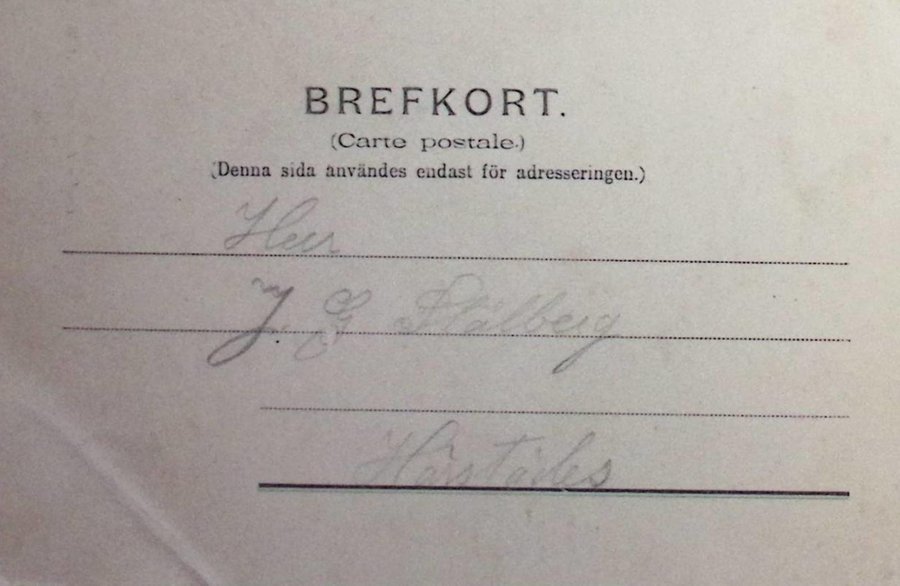 BREFKORT.
(Carte postale.)
(Denna sida användes endast för adresseringen.)
Herr
J. G Stålberg